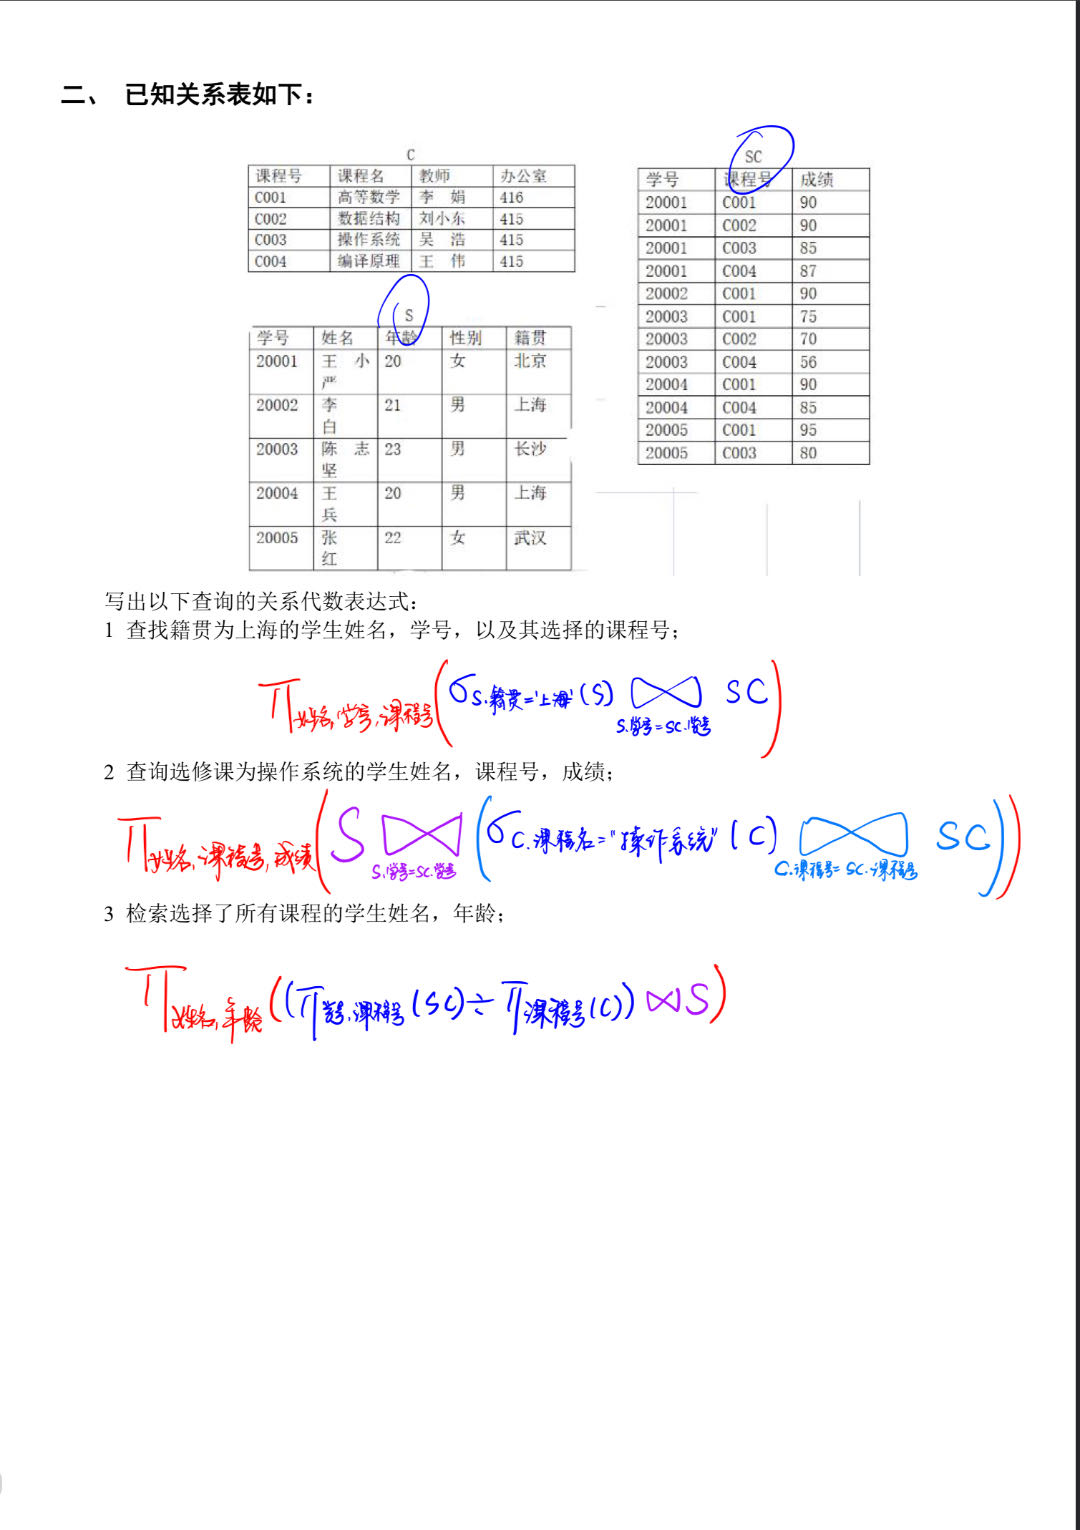 二、 已知关系表如下：
C
课程号 课程名 教师 办公室
C001 高等数学 李 娟 416
C002 数据结构 刘小东 415
C003 操作系统 吴 浩 415
C004 编译原理 王 伟 415
S
学号 姓名 年龄 性别 籍贯
20001 王 小严 20 女 北京
20002 李白 21 男 上海
20003 陈 志坚 23 男 长沙
20004 王兵 20 男 上海
20005 张红 22 女 武汉
SC
学号 课程号 成绩
20001 C001 90
20001 C002 90
20001 C003 85
20001 C004 87
20002 C001 90
20003 C001 75
20003 C002 70
20003 C004 56
20004 C001 90
20004 C004 85
20005 C001 95
20005 C003 80
写出以下查询的关系代数表达式：
1 查找籍贯为上海的学生姓名，学号，以及其选择的课程号；
π姓名,学号,课程号(σS.籍贯='上海'(S) ⋈ SC)
S.学号=SC.学号
2 查询选修课为操作系统的学生姓名，课程号，成绩；
π姓名,课程号,成绩(S ⋈ (σC.课程名="操作系统"(C) ⋈ SC))
S.学号=SC.学号 C.课程号=SC.课程号
3 检索选择了所有课程的学生姓名，年龄；
π姓名,年龄((π学号,课程号(SC)÷π课程号(C))⋈S)